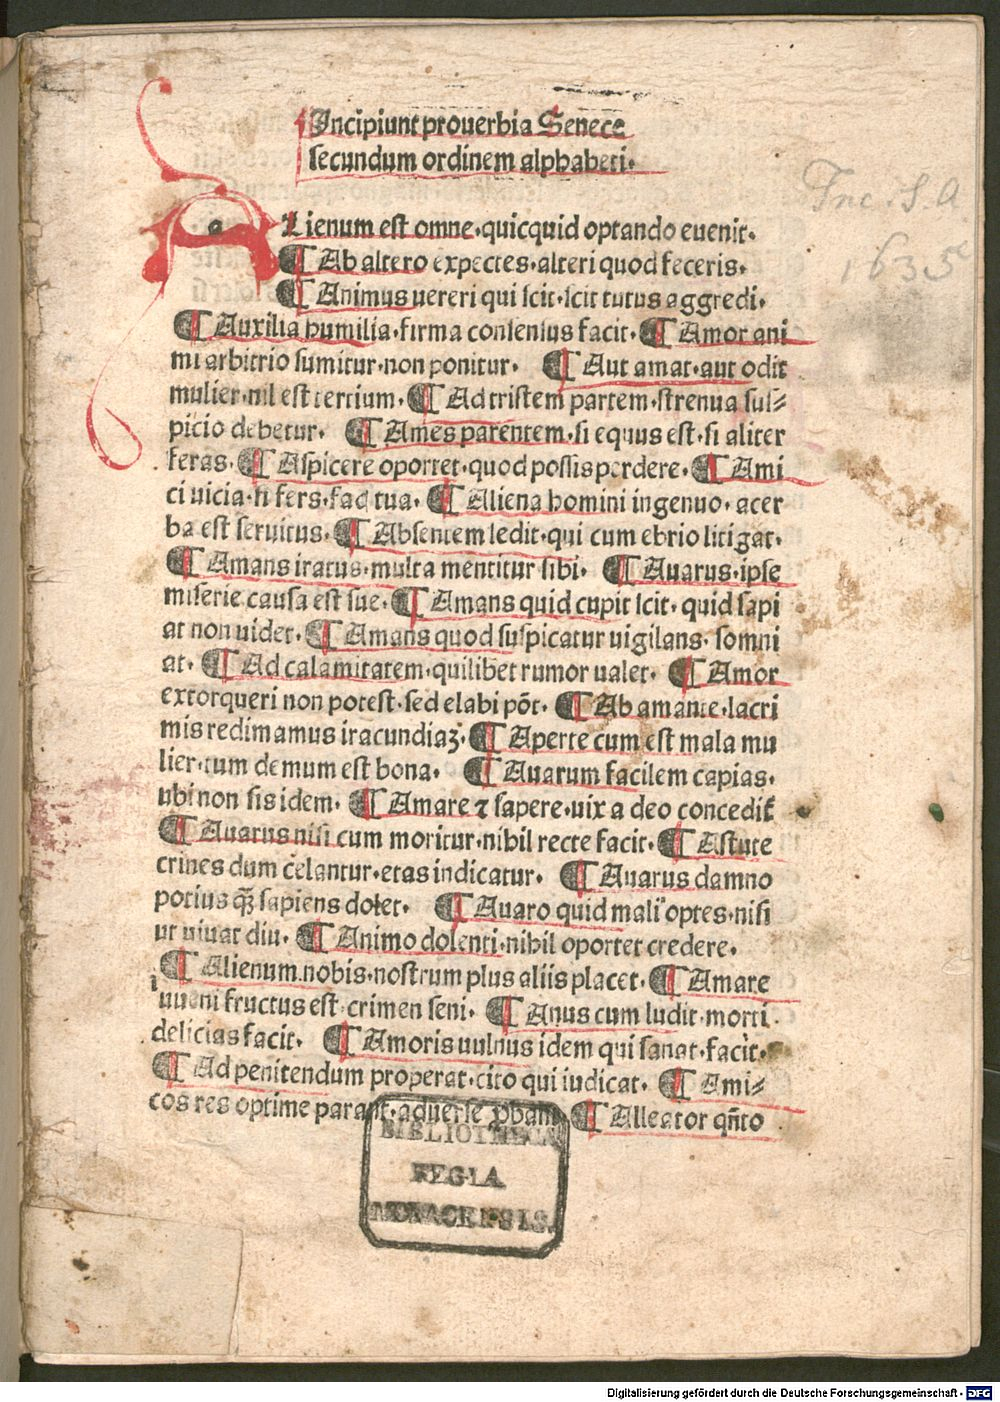 Incipiunt prouerbia Senece
secundum ordinem alphabeti.
Alienum est omne. quicquid optando euenit.
¶ Ab altero expectes. alteri quod feceris.
¶ Animus uereri qui scit. scit tutus aggredi.
¶ Auxilia humilia. firma consensus facit. ¶ Amor ani
mi arbitrio sumitur. non ponitur. ¶ Aut amat. aut odit
mulier. nil est tercium. ¶ Ad tristem partem. strenua sus⸗
picio debetur. ¶ Ames parentem. si equus est. si aliter
feras. ¶ Aspicere oportet. quod possis perdere. ¶ Ami
ci uicia. si fers. facis tua. ¶ Aliena homini ingenuo. acer
ba est seruitus. ¶ Absentem ledit. qui cum ebrio litigat.
¶ Amans iratus. multa mentitur sibi. ¶ Auarus. ipse
miserie causa est sue. ¶ Amans quid cupit scit. quid sapi
at non uidet. ¶ Amans quod suspicatur uigilans. somni
at. ¶ Ad calamitatem. quilibet rumor ualet. ¶ Amor
extorqueri non potest. sed elabi põt. ¶ Ab amante. lacri
mis redimamus iracundiaꝫ. ¶ Aperte cum est mala mu
lier. tum demum est bona. ¶ Auarum facilem capias.
ubi non sis idem. ¶ Amare ⁊ sapere. uix a deo concedit̃
¶ Auarus nisi cum moritur. nihil recte facit. ¶ Astute
crines dum celantur. etas indicatur. ¶ Auarus damno
potius qꝫ̃ sapiens dolet. ¶ Auaro quid mali optes. nisi
ut uiuat diu. ¶ Animo dolenti. nihil oportet credere.
¶ Alienum nobis. nostrum plus aliis placet. ¶ Amare
iuueni fructus est. crimen seni. ¶ Anus cum ludit. morti
delicias facit. ¶ Amoris uulnus idem qui sanat. facit.
¶ Ad penitendum properat. cito qui iudicat. ¶ Ami⸗
cos res optime parant. aduerse ꝓbant ¶ Alleator qñto
Inc. S. A
1635ᶜ
BIBLIOTHECA
REGIA
MONACENSIS.
Digitalisierung gefördert durch die Deutsche Forschungsgemeinschaft - DFG